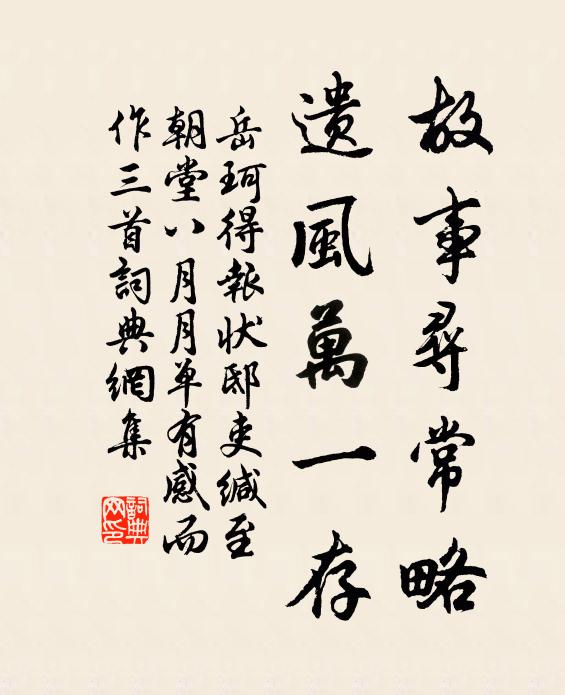 故事尋常略
遺風萬一存
岳珂得報狀邸吏緘至
朝堂八月月单有感而
作三首詞典網集
詞典
网印